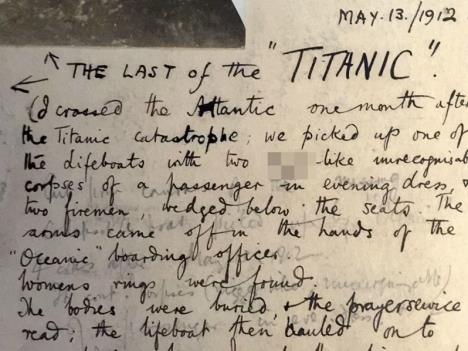 MAY.13./1912
THE LAST of the "TITANIC".
(I crossed the Atlantic one month afte
the Titanic catastrophe; we picked up one of
the lifeboats with two -like unrecognisab
corpses of a passenger in evening dress, &
two firemen wedged below the seats. The
arms came off in the hands of the
"Oceanic" boarding officer.
Womens rings were found.
The bodies were buried, & the prayerservice
read; the lifeboat then hauled on to